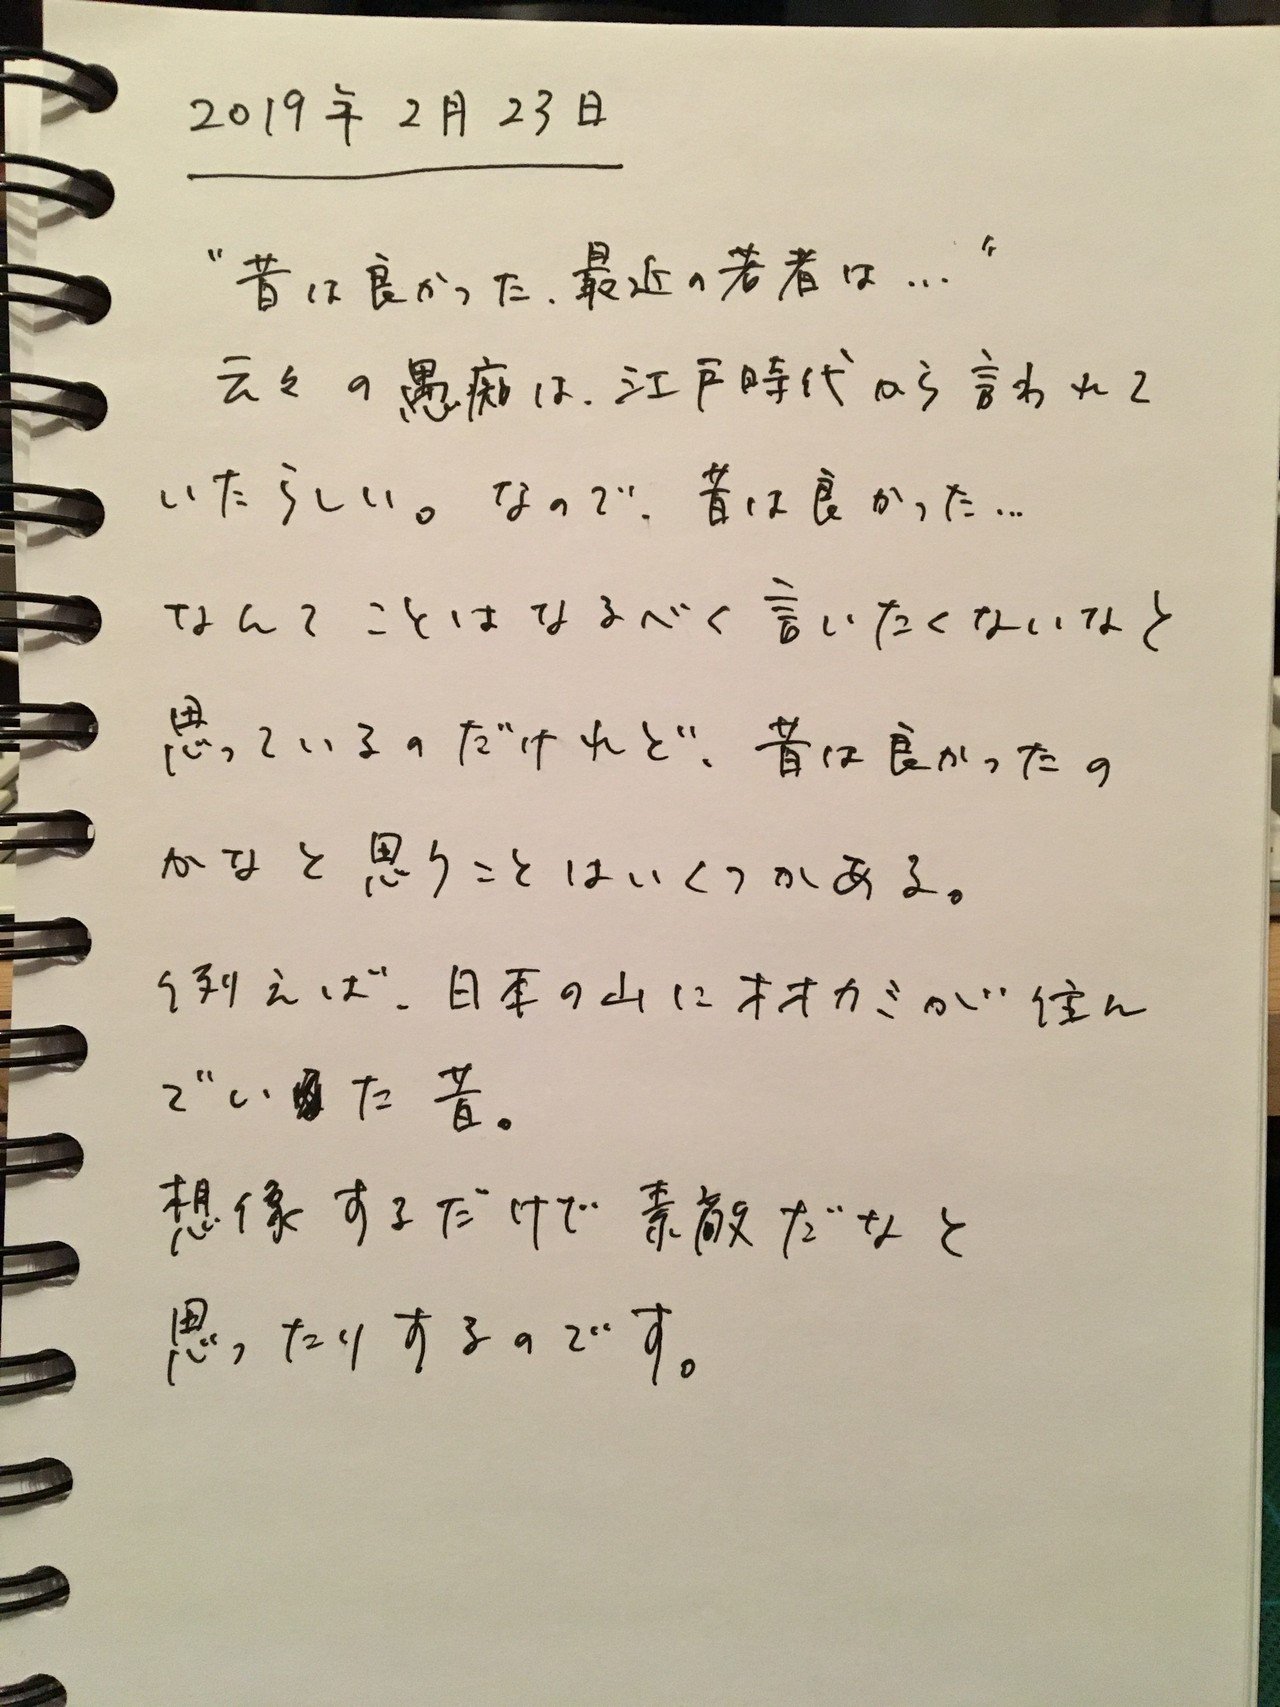 2019年2月23日
"昔は良かった、最近の若者は…"
云々の愚痴は、江戸時代から言われて
いたらしい。なので、昔は良かった…
なんてことはなるべく言いたくないなと
思っているのだけれど、昔は良かったの
かなと思うことはいくつかある。
例えば、日本の山にオオカミが住ん
でいた昔。
想像するだけで素敵だなと
思ったりするのです。